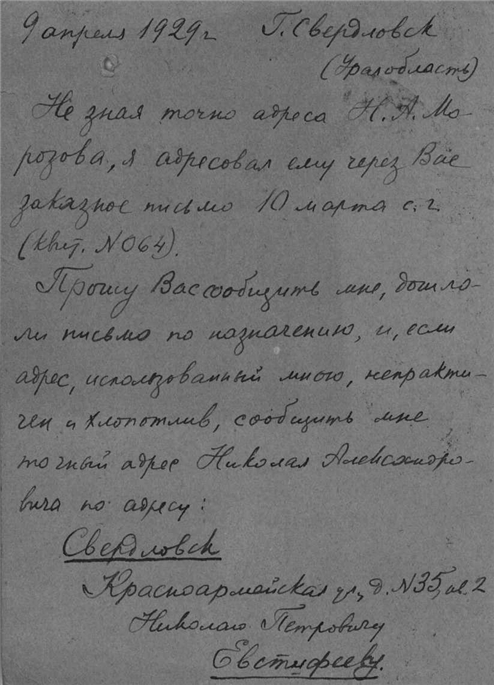 9 апреля 1929 г Г. Свердловск
(Уралобласть)
Не зная точно адреса Н. А. Мо-
розова, я адресовал ему через Вас
заказное письмо 10 марта с. г.
(квит. N 064).
Прошу Вас сообщить мне, дошло-
ли письмо по назначению, и, если
адрес, использованный мною, непракти-
чен и хлопотлив, сообщить мне
точный адрес Николая Александро-
вича по адресу:
Свердловск
Красноармейская ул, д. N 35, кв. 2
Николаю Петровичу
Евстифееву.